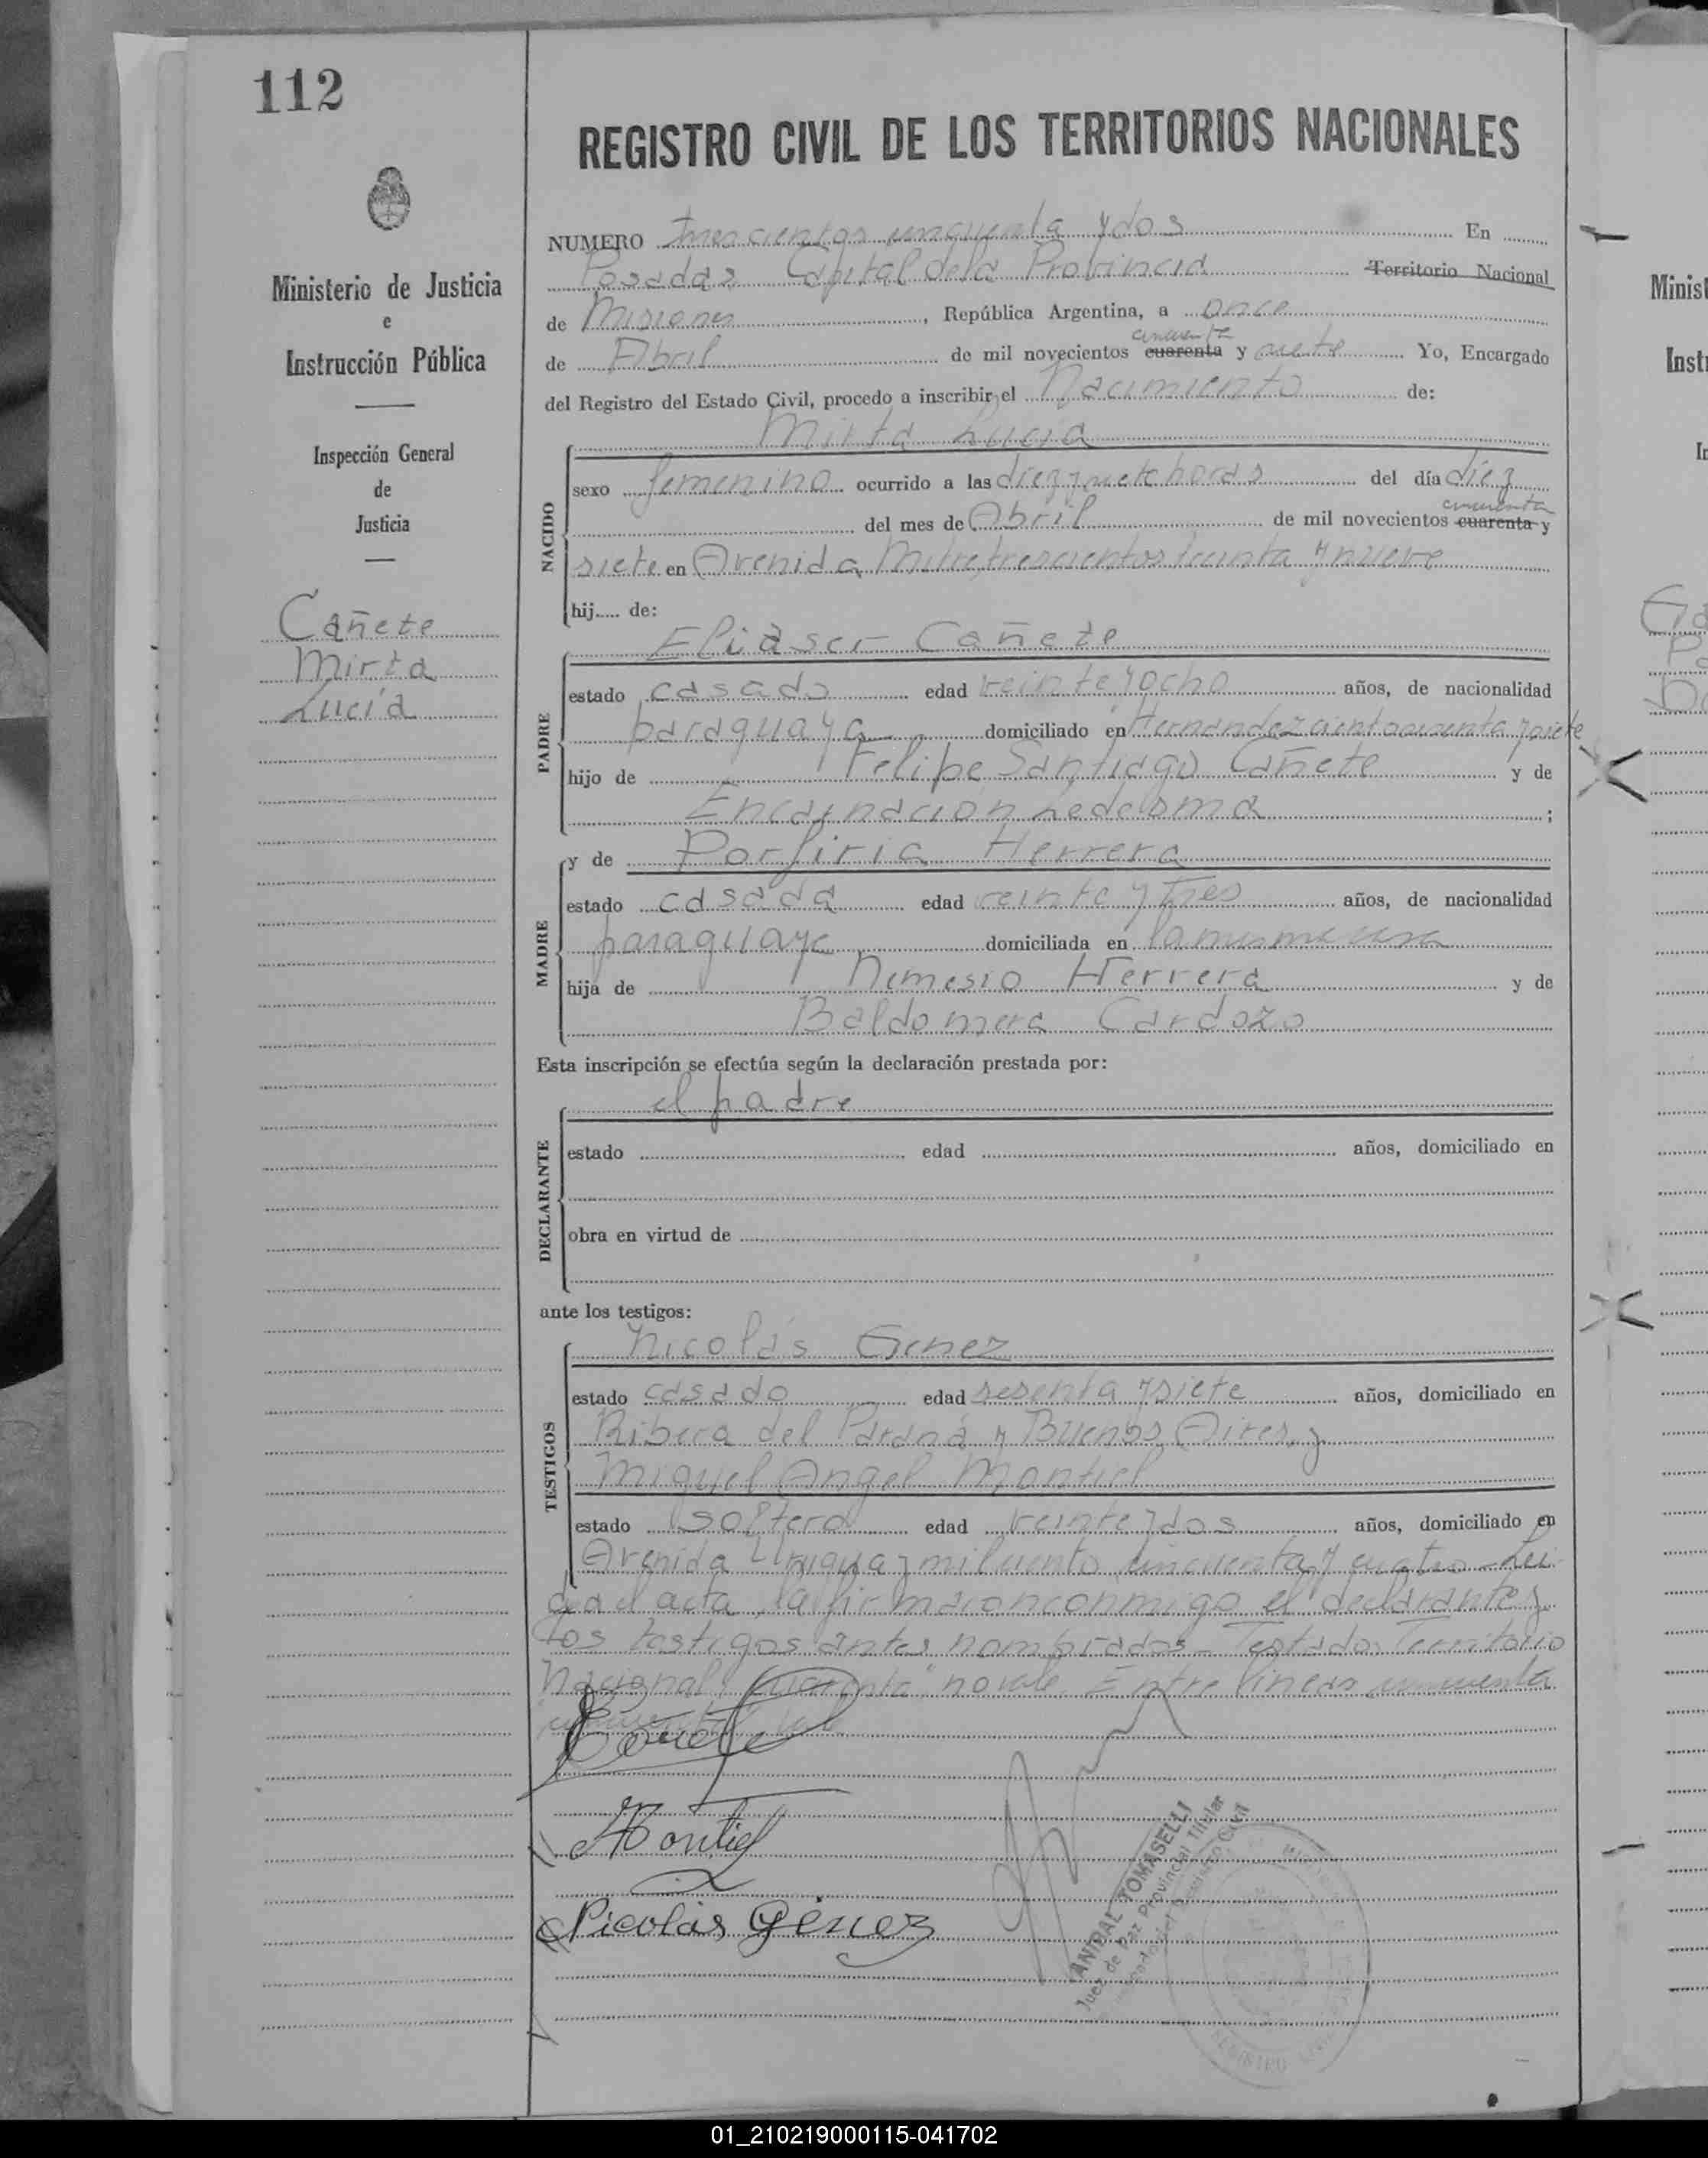 112
REGISTRO CIVIL DE LOS TERRITORIOS NACIONALES
Ministerio de Justicia
e
Instrucción Pública
Inspección General
de
Justicia
Cañete
Mirta
Lucía
NUMERO Trescientos cincuenta y dos En
Posadas Capital de la Provincia Territorio Nacional
de Misiones, República Argentina, a once
cincuenta
de Abril de mil novecientos cuarenta y siete Yo, Encargado
del Registro del Estado Civil, procedo a inscribir el Nacimiento de:
Mirta Lucia
NACIDO
sexo femenino ocurrido a las diez y siete horas del día diez
cincuenta
del mes de Abril de mil novecientos cuarenta y
siete en Avenida Mitre trescientos treinta y nueve
hij.... de:
Eliaser Cañete
PADRE
estado casado edad veinte y ocho años, de nacionalidad
paraguaya domiciliado en Hernandez ciento cincuenta y siete
hijo de Felipe Santiago Cañete y de
Encarnación Ledesma ;
y de Porfiria Herrera
MADRE
estado casada edad veinte y tres años, de nacionalidad
paraguaya domiciliada en la misma casa
hija de Nemesio Herrera y de
Baldomera Cardozo
Esta inscripción se efectúa según la declaración prestada por:
el padre
DECLARANTE
estado edad años, domiciliado en
obra en virtud de
ante los testigos:
Nicolás Genez
TESTIGOS
estado casado edad sesenta y siete años, domiciliado en
Ribera del Paraná y Buenos Aires y
Miguel Angel Montiel
estado soltero edad veinte y dos años, domiciliado en
Avenida Uruguay mil ciento cincuenta y cuatro - Leí
da el acta, la firmaron conmigo el declarante y
los testigos antes nombrados - Testado: Territorio
Nacional, "cuarenta" no vale. Entre lineas cincuenta
Cañete
Montiel
Nicolás Génez
ANIBAL TOMASELLI
Juez de Paz Provincial Titular
Encargado del Registro Civil
01_210219000115-041702